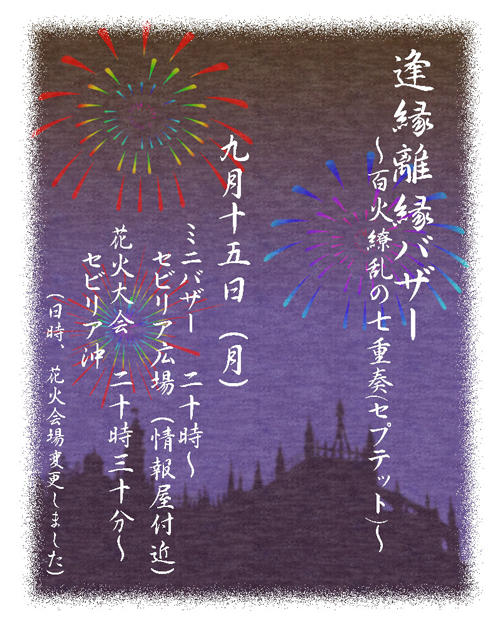 逢縁離縁バザー
～百火繚乱の七重奏(セプテット)～
九月十五日（月）
ミニバザー　二十時～
セビリア広場（情報屋付近）
花火大会　二十時三十分～
セビリア沖
（日時、花火会場変更しました）